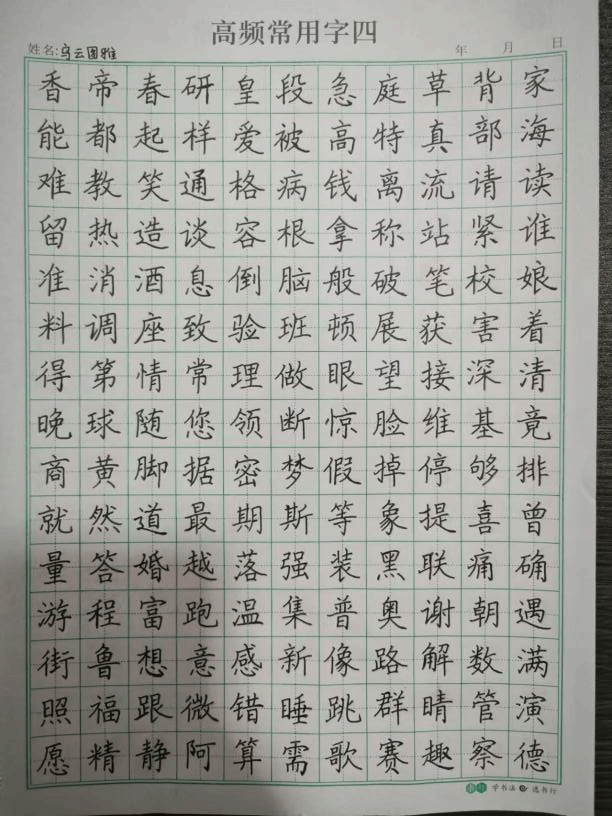 高频常用字四
姓名:乌云图雅 年 月 日
香帝春研皇段急庭草背家
能都起样爱被高特真部海
难教笑通格病钱离流请读
留热造谈容根拿称站紧谁
准消酒息倒脑般破笔校娘
料调座致验班顿展获害着
得第情常理做眼望接深清
晚球随您领断惊脸维基竟
商黄脚据密梦假掉停够排
就然道最期斯等象提喜曾
量答婚越落强装黑联痛确
游程富跑温集普奥谢朝遇
街鲁想意感新像路解数满
照福跟微错睡跳群睛管演
愿精静阿算需歌赛趣察德
学书法 选书行